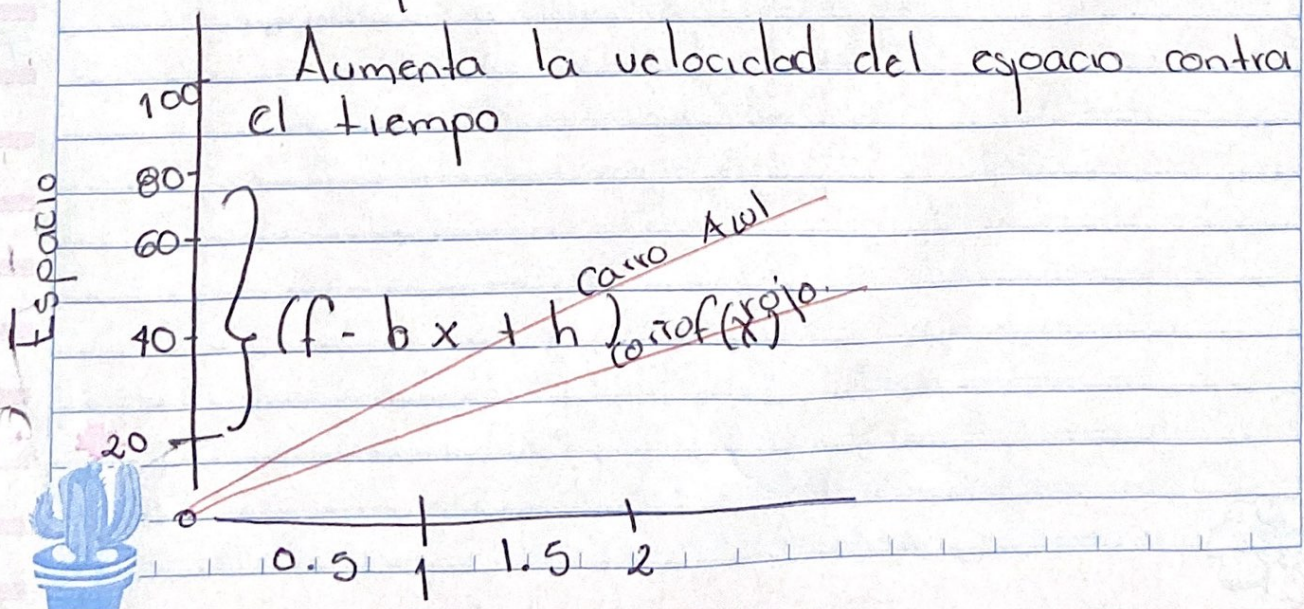 Aumenta la velocidad del espacio contra
el tiempo
Espacio
100
80
60
40
20
0
carro Azul
(f - b x + h) f(x)
carro rojo.
0.5 1 1.5 2